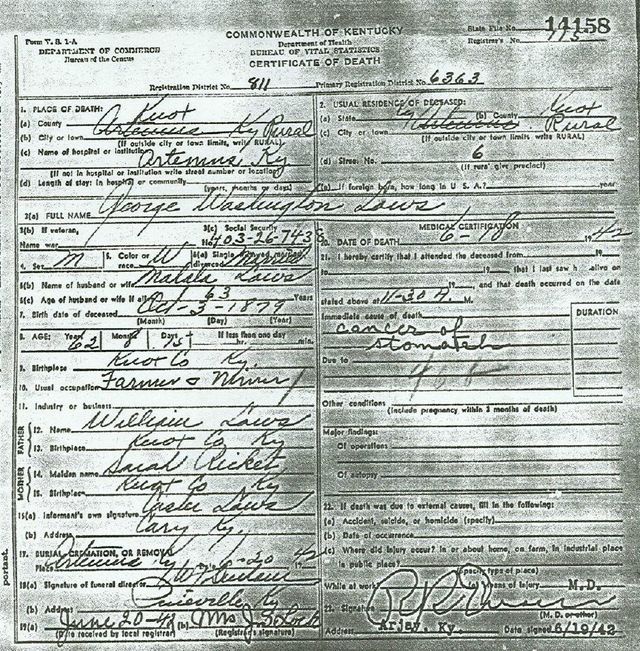 COMMONWEALTH OF KENTUCKY
State File No. 14158
Form V. S. 1-A
DEPARTMENT OF COMMERCE
Bureau of the Census
Department of Health
BUREAU OF VITAL STATISTICS
CERTIFICATE OF DEATH
Registrar's No.
Registration District No. 811
Primary Registration District No. 6363
1. PLACE OF DEATH:
(a) County Knox
(b) City or town Artemus Ky Rural
(If outside city or town limits, write RURAL)
(c) Name of hospital or institution Artemus Ky
(If not in hospital or institution write street number or location)
(d) Length of stay: In hospital or community
(years, months or days)
2. USUAL RESIDENCE OF DECEASED:
(a) State Ky (b) County Knox
(c) City or town Artemus Rural
(If outside city or town limits, write RURAL)
(d) Street No. 6
(If rural give precinct)
(e) If foreign born, how long in U. S. A.? year
3(a) FULL NAME George Washington Laws
3(b) If veteran,
Name war
3(c) Social Security
No. 403-26-7438
4. Sex M
5. Color or race W
6(a) Single, married,
divorced
6(b) Name of husband or wife Laws
6(c) Age of husband or wife if alive 63 Years
7. Birth date of deceased Oct-3-1879
(Month) (Day) (Year)
8. AGE: Years 62 Months 8 Days 15
If less than one day
hr. min.
9. Birthplace Knox Co Ky.
10. Usual occupation Farmer & Miner
11. Industry or business
FATHER
12. Name William Laws
13. Birthplace Knox Co Ky
MOTHER
14. Maiden name Sarah Ricket
15. Birthplace Knox Co Ky
16(a) Informant's own signature Laws
(b) Address Cary Ky.
17. BURIAL, CREMATION, OR REMOVAL
Artemus Ky 6-20 1942
18(a) Signature of funeral director
(b) Address Pineville Ky
19(a) June 20-42 (b) Mrs J.
(Date received by local registrar) (Registrar's signature)
MEDICAL CERTIFICATION
20. DATE OF DEATH 6-18 1942
21. I hereby certify that I attended the deceased from
19 to 19 that I last saw h alive on
19 and that death occurred on the date
stated above at 11-30 A. M.
DURATION
Immediate cause of death
cancer of
stomach
Due to
Other conditions
(Include pregnancy within 3 months of death)
Major findings:
Of operations
Of autopsy
22. If death was due to external causes, fill in the following:
(a) Accident, suicide, or homicide (specify)
(b) Date of occurrence
(c) Where did injury occur? In or about home, on farm, in industrial place
in public place?
(Specify type of place)
While at work (e) Means of Injury
M.D.
23. Signature
(M. D. or other)
Address Arjay, Ky. Date signed 6/19/42
portant.